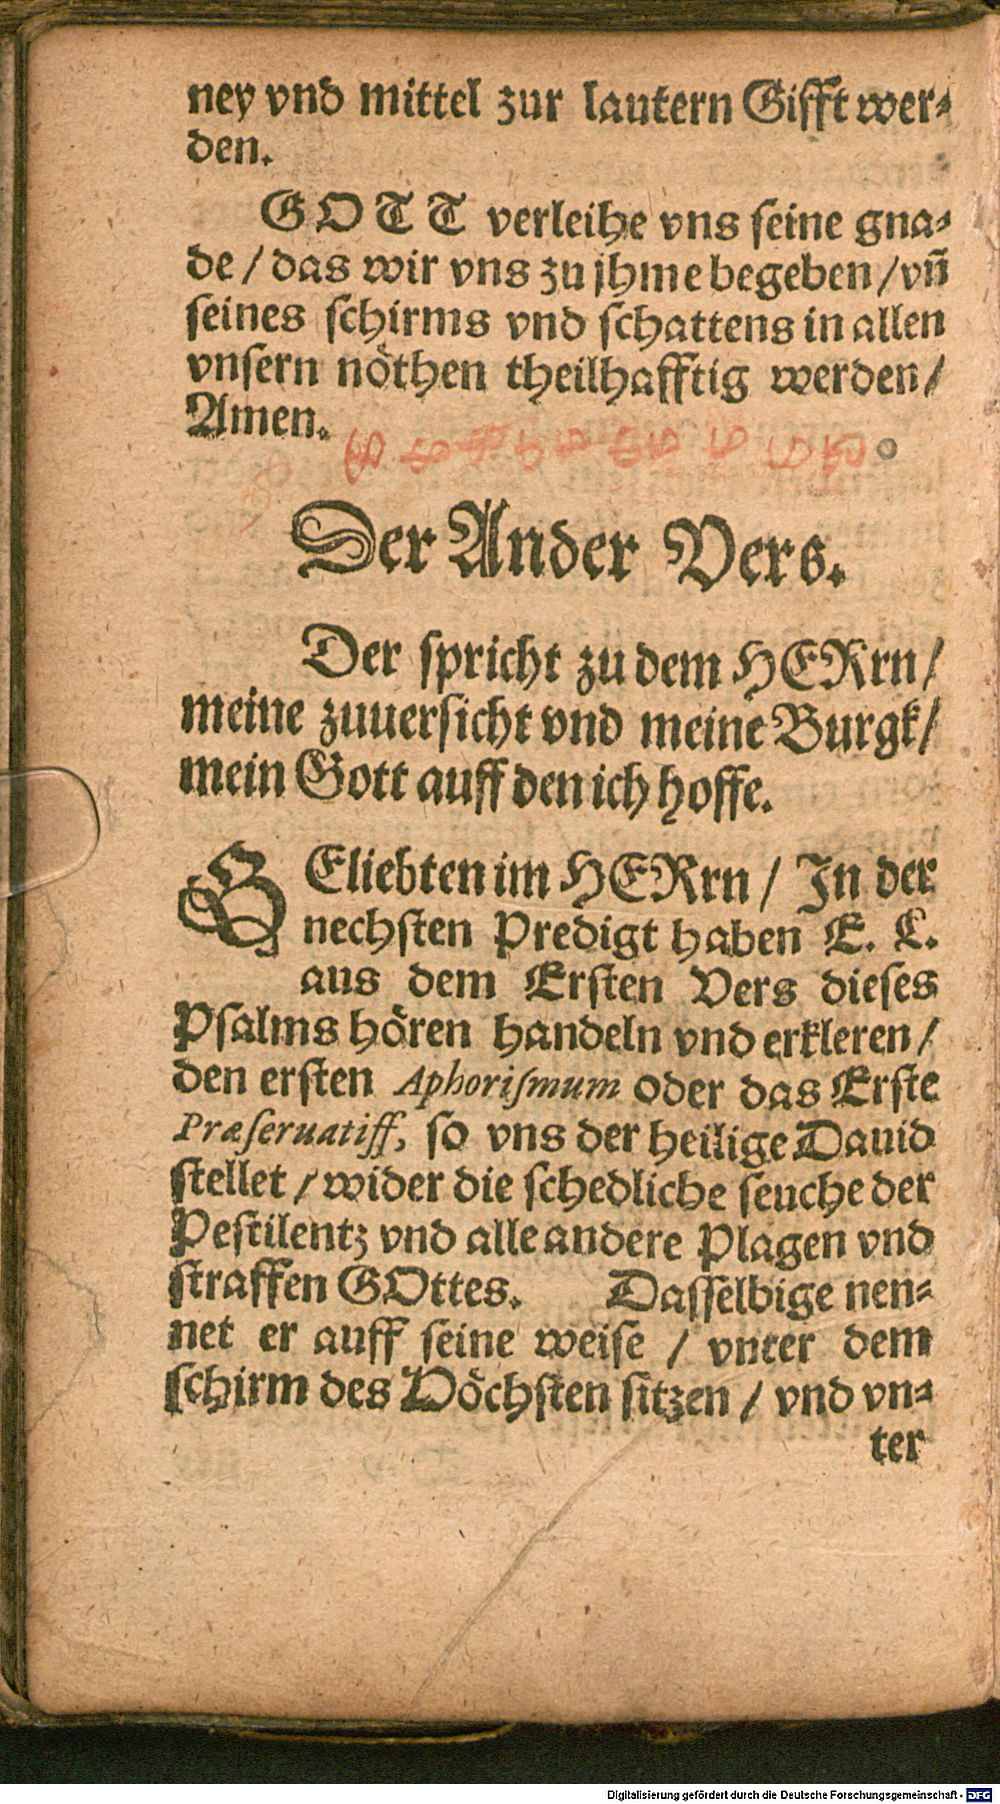 ney vnd mittel zur lautern Gifft wer⸗
den.
GOTT verleihe vns seine gna⸗
de / das wir vns zu jhme begeben / vñ
seines schirms vnd schattens in allen
vnsern nöthen theilhafftig werden /
Amen.
Der Ander Vers.
Der spricht zu dem HERrn /
meine zuuersicht vnd meine Burgk /
mein Gott auff den ich hoffe.
GEliebten im HERrn / In der
nechsten Predigt haben E. L.
aus dem Ersten Vers dieses
Psalms hören handeln vnd erkleren /
den ersten Aphorismum oder das Erste
Præseruatiff, so vns der heilige Dauid
stellet / wider die schedliche seuche der
Pestilentz vnd alle andere Plagen vnd
straffen GOttes. Dasselbige nen⸗
net er auff seine weise / vnter dem
schirm des Höchsten sitzen / vnd vn⸗
ter
Digitalisierung gefördert durch die Deutsche Forschungsgemeinschaft - DFG